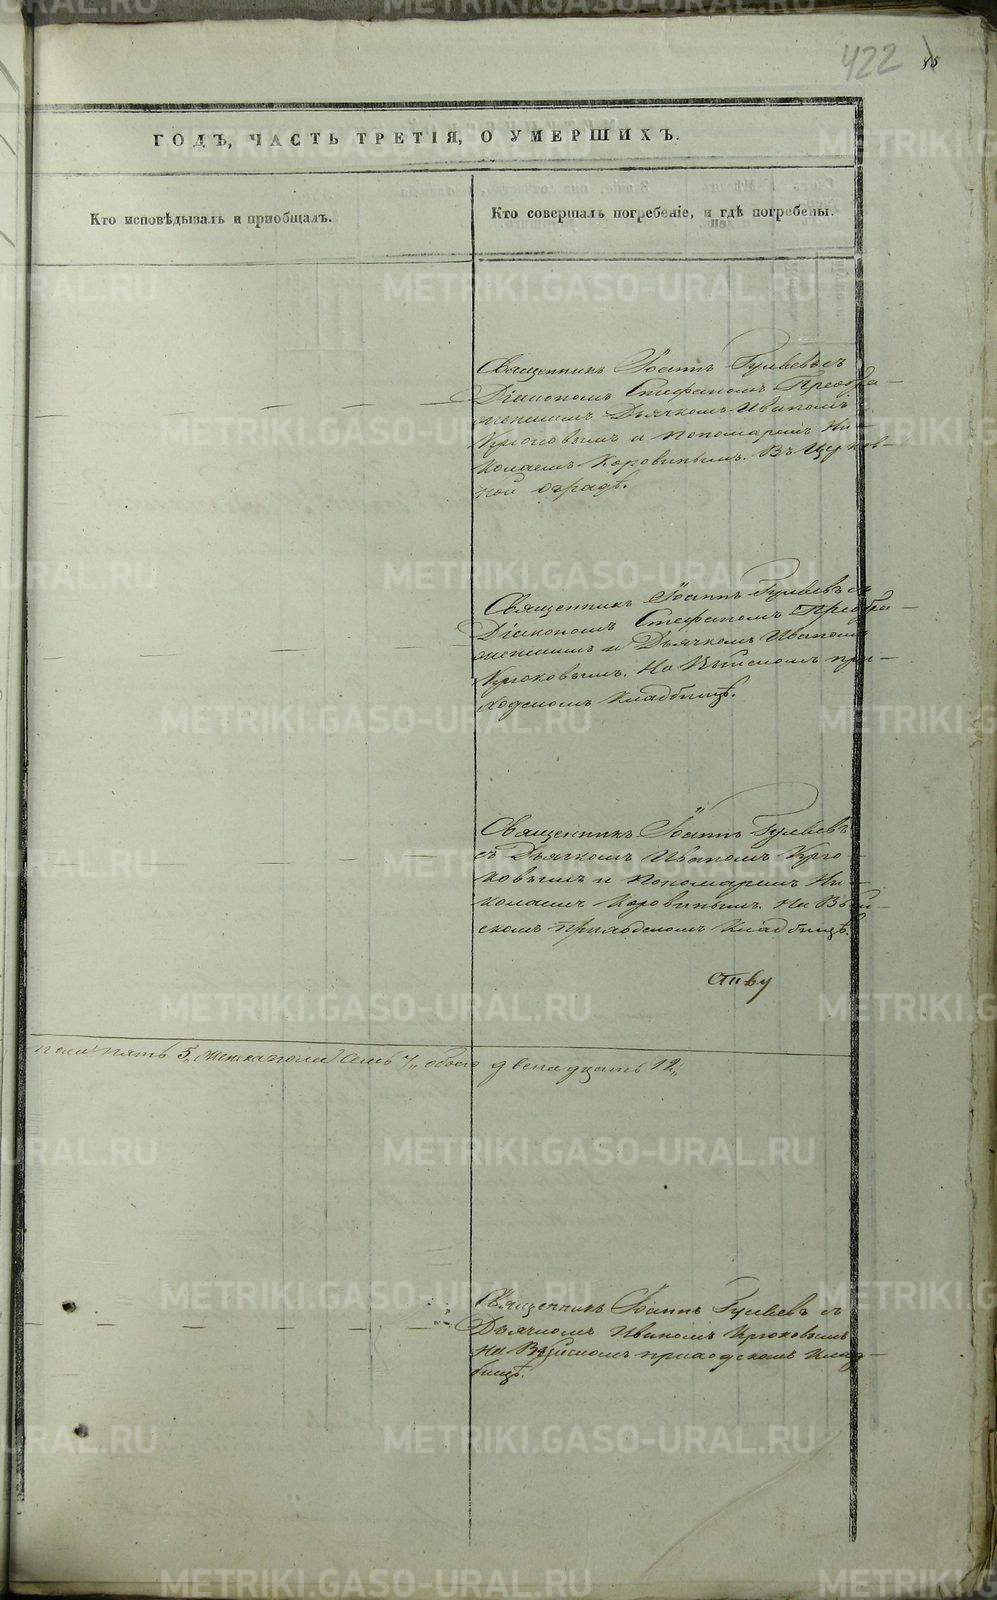 422
ГОДЪ, ЧАСТЬ ТРЕТІЯ, О УМЕРШИХЪ.
Кто исповѣдывалъ и приобщалъ.
Кто совершалъ погребеніе, и гдѣ погребены.
Священникъ Іоаннъ Гуляевъ съ
Діакономъ Стефаномъ Преобра-
женскимъ Дьячкомъ Иваномъ
Крюковымъ и Пономаремъ Ни-
колаемъ Коровинымъ. Въ Церков-
ной оградѣ.
Священникъ Іоаннъ Гуляевъ съ
Діакономъ Стефаномъ Преобра-
женскимъ и Дьячкомъ Иваномъ
Крюковымъ. На Выйскомъ при-
ходскомъ Кладбищѣ.
Священникъ Іоаннъ Гуляевъ
съ Дьячкомъ Иваномъ Крю
ковымъ и Пономаремъ Ни-
колаемъ Коровинымъ. На Вый-
скомъ приходскомъ Кладбищѣ.
ству
пола пять 5, женска пола семь 7, обоего двенадцать 12,,
Священникъ Іоаннъ Гуляевъ съ
Дьячкомъ Иваномъ Крюковымъ
на Выйскомъ приходскомъ Клад-
бищѣ.
METRIKI.GASO-URAL.RU